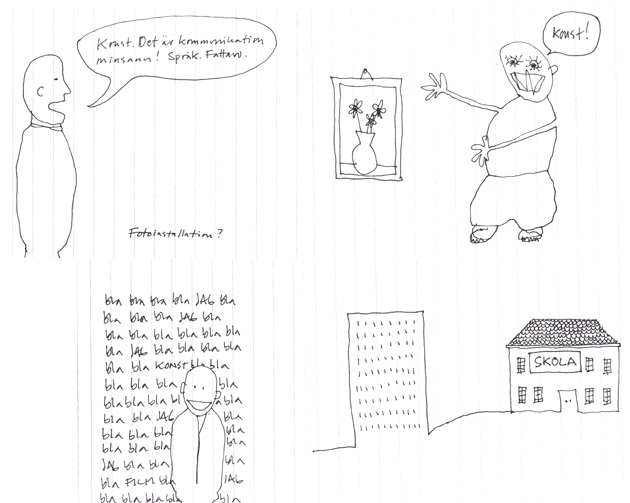 Konst. Det är kommunikation
minsann! Språk. Fattaru.
Konst!
Fotoinstallation?
bla bla bla bla JAG bla
bla bla bla JAG bla
bla bla bla bla bla bla
bla JAG bla bla bla bla
bla bla KONST bla bla
bla bla bla bla
bla bla bla bl bla
bla bla JAG bla
bla bla bla bla
bla bla bla bla
JAG bla bla bla
bla FILM bla JAG
bla bla bla bla bla
SKOLA